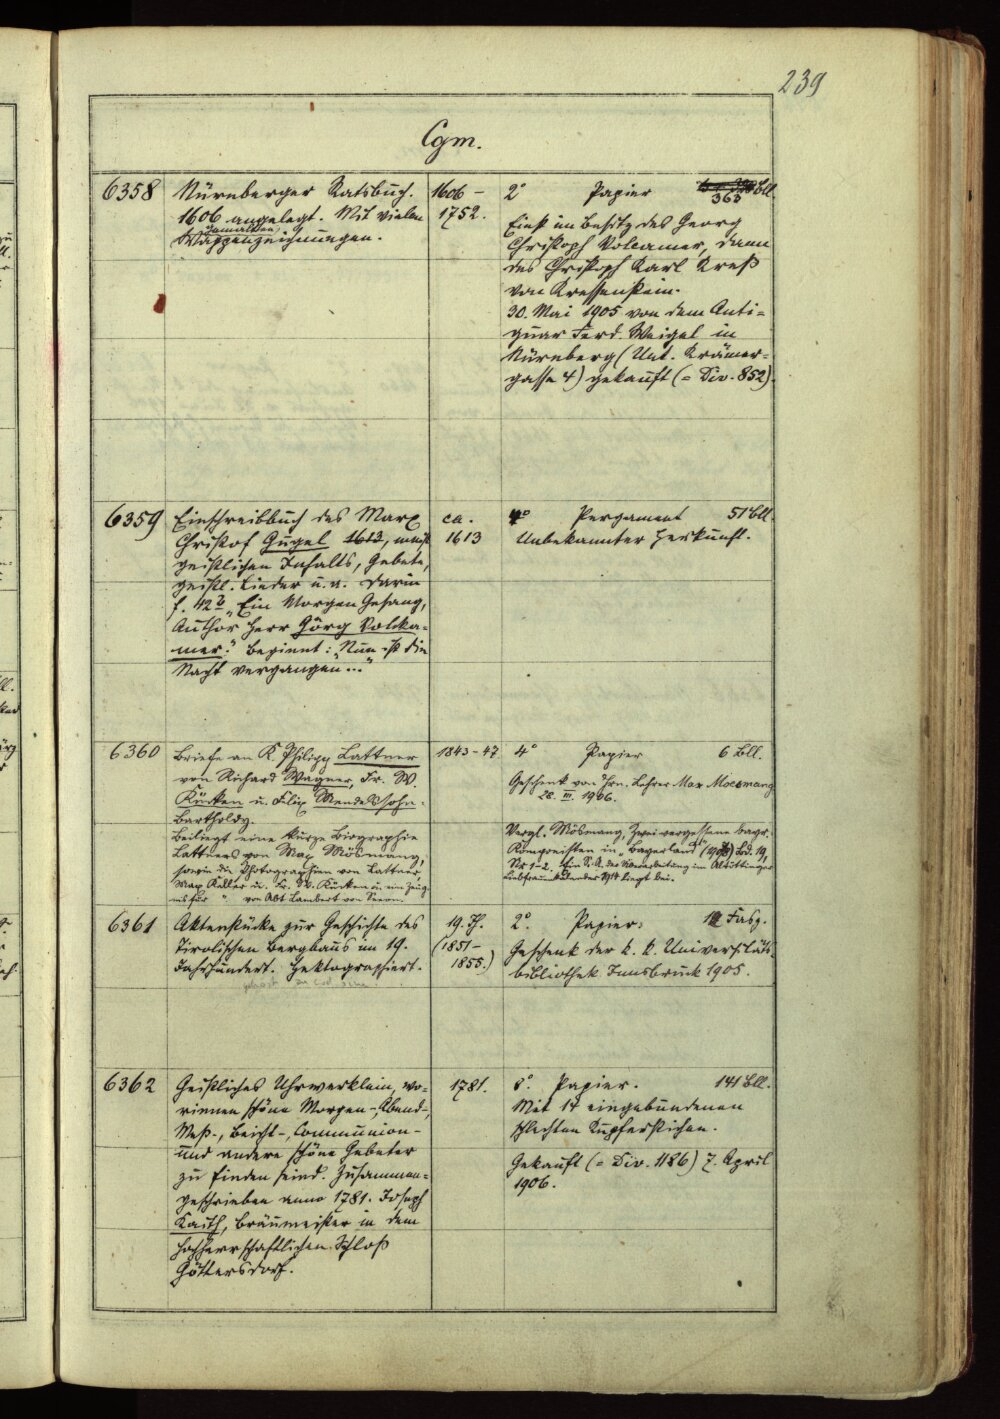 239
Cgm.
6358 Nürnberger Ratsbuch. 1606 – 2° Papier 363 Bll.
1606 angelegt. Mit vielen 1752.
gemalten
Wappenzeichnungen.
Einst im Besitz des Georg
Christoph Volcamer, dann
des Christoph Karl Kreß
von Kressenstein.
30. Mai 1905 von dem Anti=
quar Ferd. Weigel in
Nürnberg (Unt. Krämer=
gasse 4) gekauft (= Div. 852).
6359 Einschreibbuch des Marx ca. 4° Pergament 51 Bll.
Christof Gugel 1613, meist 1613 Unbekannter Herkunft.
geistlichen Inhalts, Gebete,
geistl. Lieder u. a. Darin
f. 42b „Ein Morgen Gesang,
Author Herr Görg Volcka=
mer." Beginnt: „Nun ist die
Nacht vergangen..."
6360 Briefe an K. Philipp Lattner 1843–47 4° Papier 6 Bll.
von Richard Wagner, Fr. W.
Kücken u. Felix Mendelssohn-
Bartholdy.
Beiliegt eine kurze Biographie
Lattners von Max Mösmang,
sowie die Photographien von Lattner,
Max Keller u. Fr. W. Kücken u. ein Zeug-
nis für " von Abt Lambert von Seeon.
Geschenk von Hrn. Lehrer Max Moesmang
28. III. 1906.
Vergl. Mösmang, Zwei vergessene bayr.
Komponisten in „Bayerland" (1908) Bd. 19,
Nr 1–2. Ein S. A. der Bearbeitung im Altöttinger
Liebfrauenkalender liegt bei.
6361 Aktenstücke zur Geschichte des 19. Jh. 2°. Papier. Fasz.
Tirolischen Bergbaus im 19. (1851– Geschenk der k. k. Universitäts-
Jahrhundert. Hektographiert. 1855.) bibliothek Innsbruck 1905.
6362 Geistliches Uhrwerklein, wo= 1781. 8°. Papier. 141 Bll.
rinnen schöne Morgen-, Abend-, Mit 14 eingebundenen
Meß-, Beicht-, Communion- schlechten Kupferstichen.
und andere schöne Gebeter
zu finden seind. Zusammen=
geschrieben anno 1781. Joseph
Kaith, Bräumeister in dem
hochherrschaftlichen Schloß
Göttersdorf.
Gekauft (= Div. 1186) 7. April
1906.